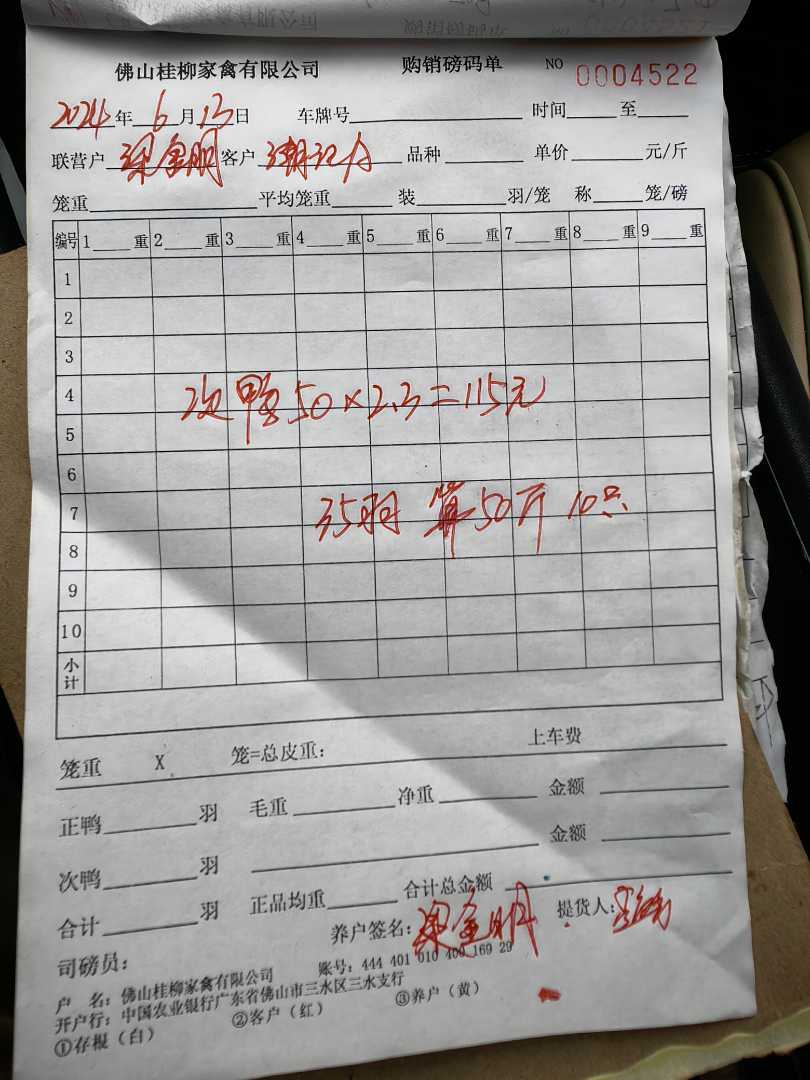 佛山桂柳家禽有限公司 购销磅码单 NO 0004522
2024年6月13日 车牌号 时间 至
联营户 梁金明 客户 品种 单价 元/斤
笼重 平均笼重 装 羽/笼 称 笼/磅
编号 1 重 2 重 3 重 4 重 5 重 6 重 7 重 8 重 9 重
1
2
3
4
次鸭50×2.3=115元
5
6
7
35羽 算50斤 10只
8
9
10
小计
笼重 X 笼=总皮重: 上车费
正鸭 羽 毛重 净重 金额
次鸭 羽 金额
合计 羽 正品均重 合计总金额
养户签名: 梁金明 提货人:
司磅员:
户 名: 佛山桂柳家禽有限公司 账号: 444 401 010 400 169 29
开户行: 中国农业银行广东省佛山市三水区三水支行
①存根（白） ②客户（红） ③养户（黄）